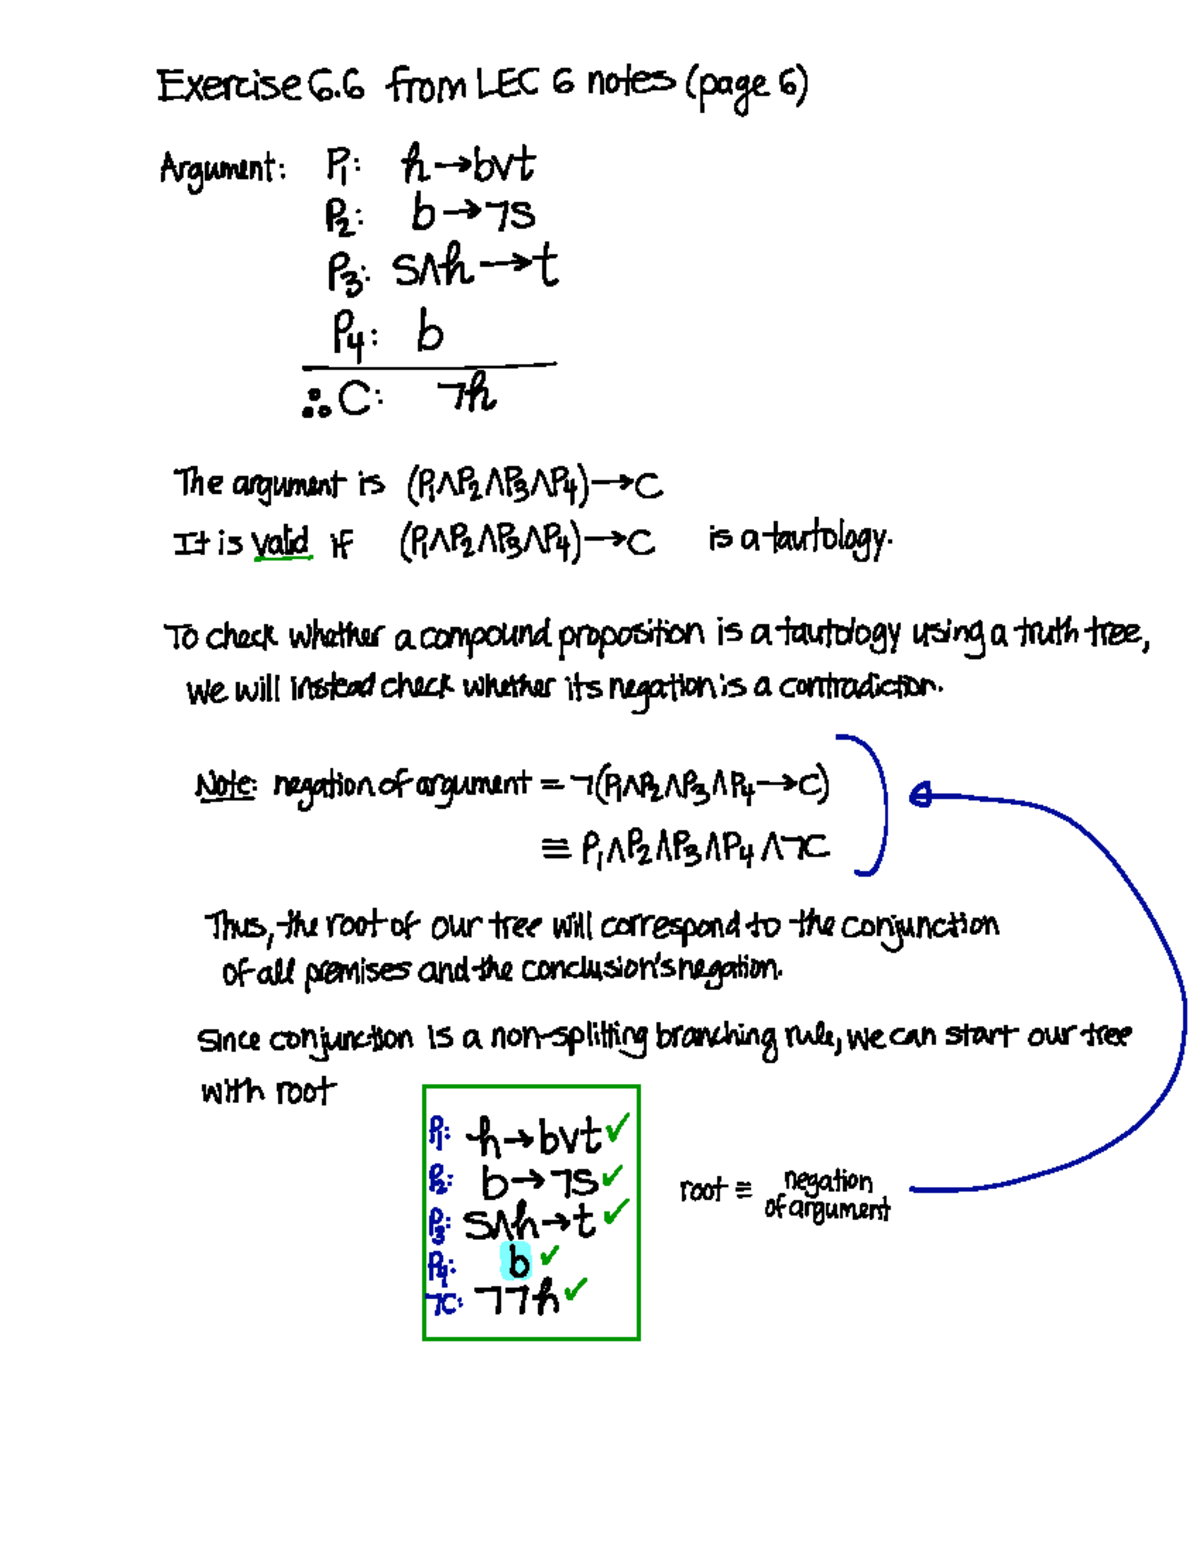 Exercise 6.6 from LEC 6 notes (page 6)
Argument: P₁: h→b∨t
P₂: b→¬s
P₃: s∧h→t
P₄: b
∴ C: ¬h
The argument is (P₁∧P₂∧P₃∧P₄)→C
It is valid if (P₁∧P₂∧P₃∧P₄)→C is a tautology.
To check whether a compound proposition is a tautology using a truth tree,
we will instead check whether its negation is a contradiction.
Note: negation of argument = ¬(P₁∧P₂∧P₃∧P₄→C)
≡ P₁∧P₂∧P₃∧P₄∧¬C
Thus, the root of our tree will correspond to the conjunction
of all premises and the conclusion's negation.
Since conjunction is a non-splitting branching rule, we can start our tree
with root
P₁: h→b∨t ✓
P₂: b→¬s ✓
P₃: s∧h→t ✓
P₄: b ✓
¬C: ¬¬h ✓
root ≡ negation
of argument